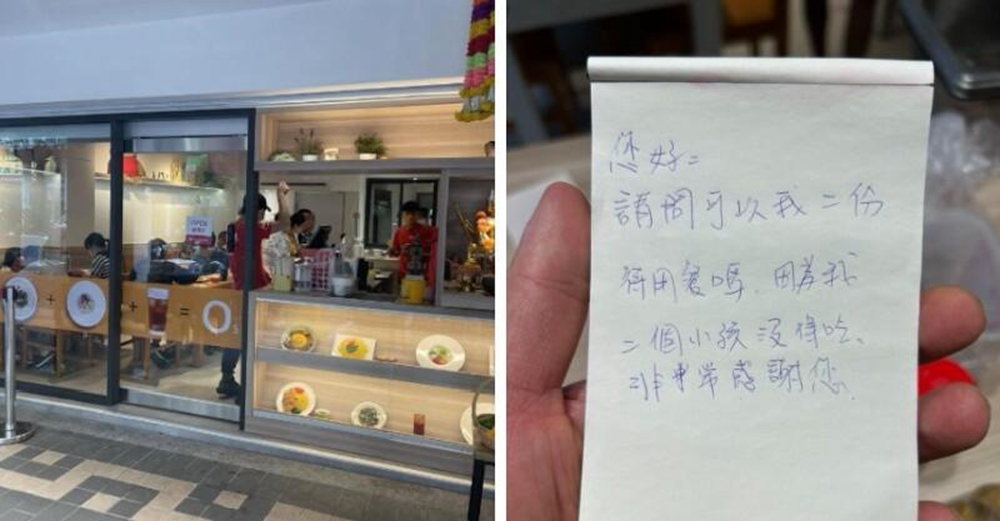 OPEN
+ + = 0
您好：
請問可以我二份
待用餐嗎、因為我
二個小孩沒得吃、
非常感謝您、